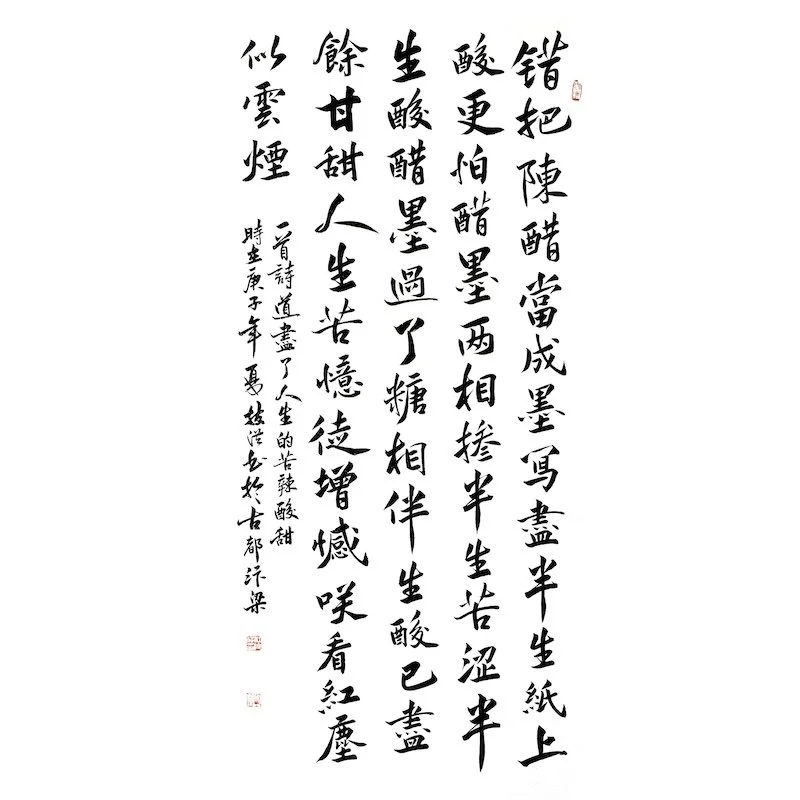 错把陳醋當成墨写盡半生紙上
酸更怕醋墨两相掺半生苦涩半
生酸醋墨過了糖相伴生酸已盡
餘甘甜人生苦憶徒增憾咲看紅塵
似雲煙
一首詩道盡了人生的苦辣酸甜
時在庚子年夏书於古都汴梁